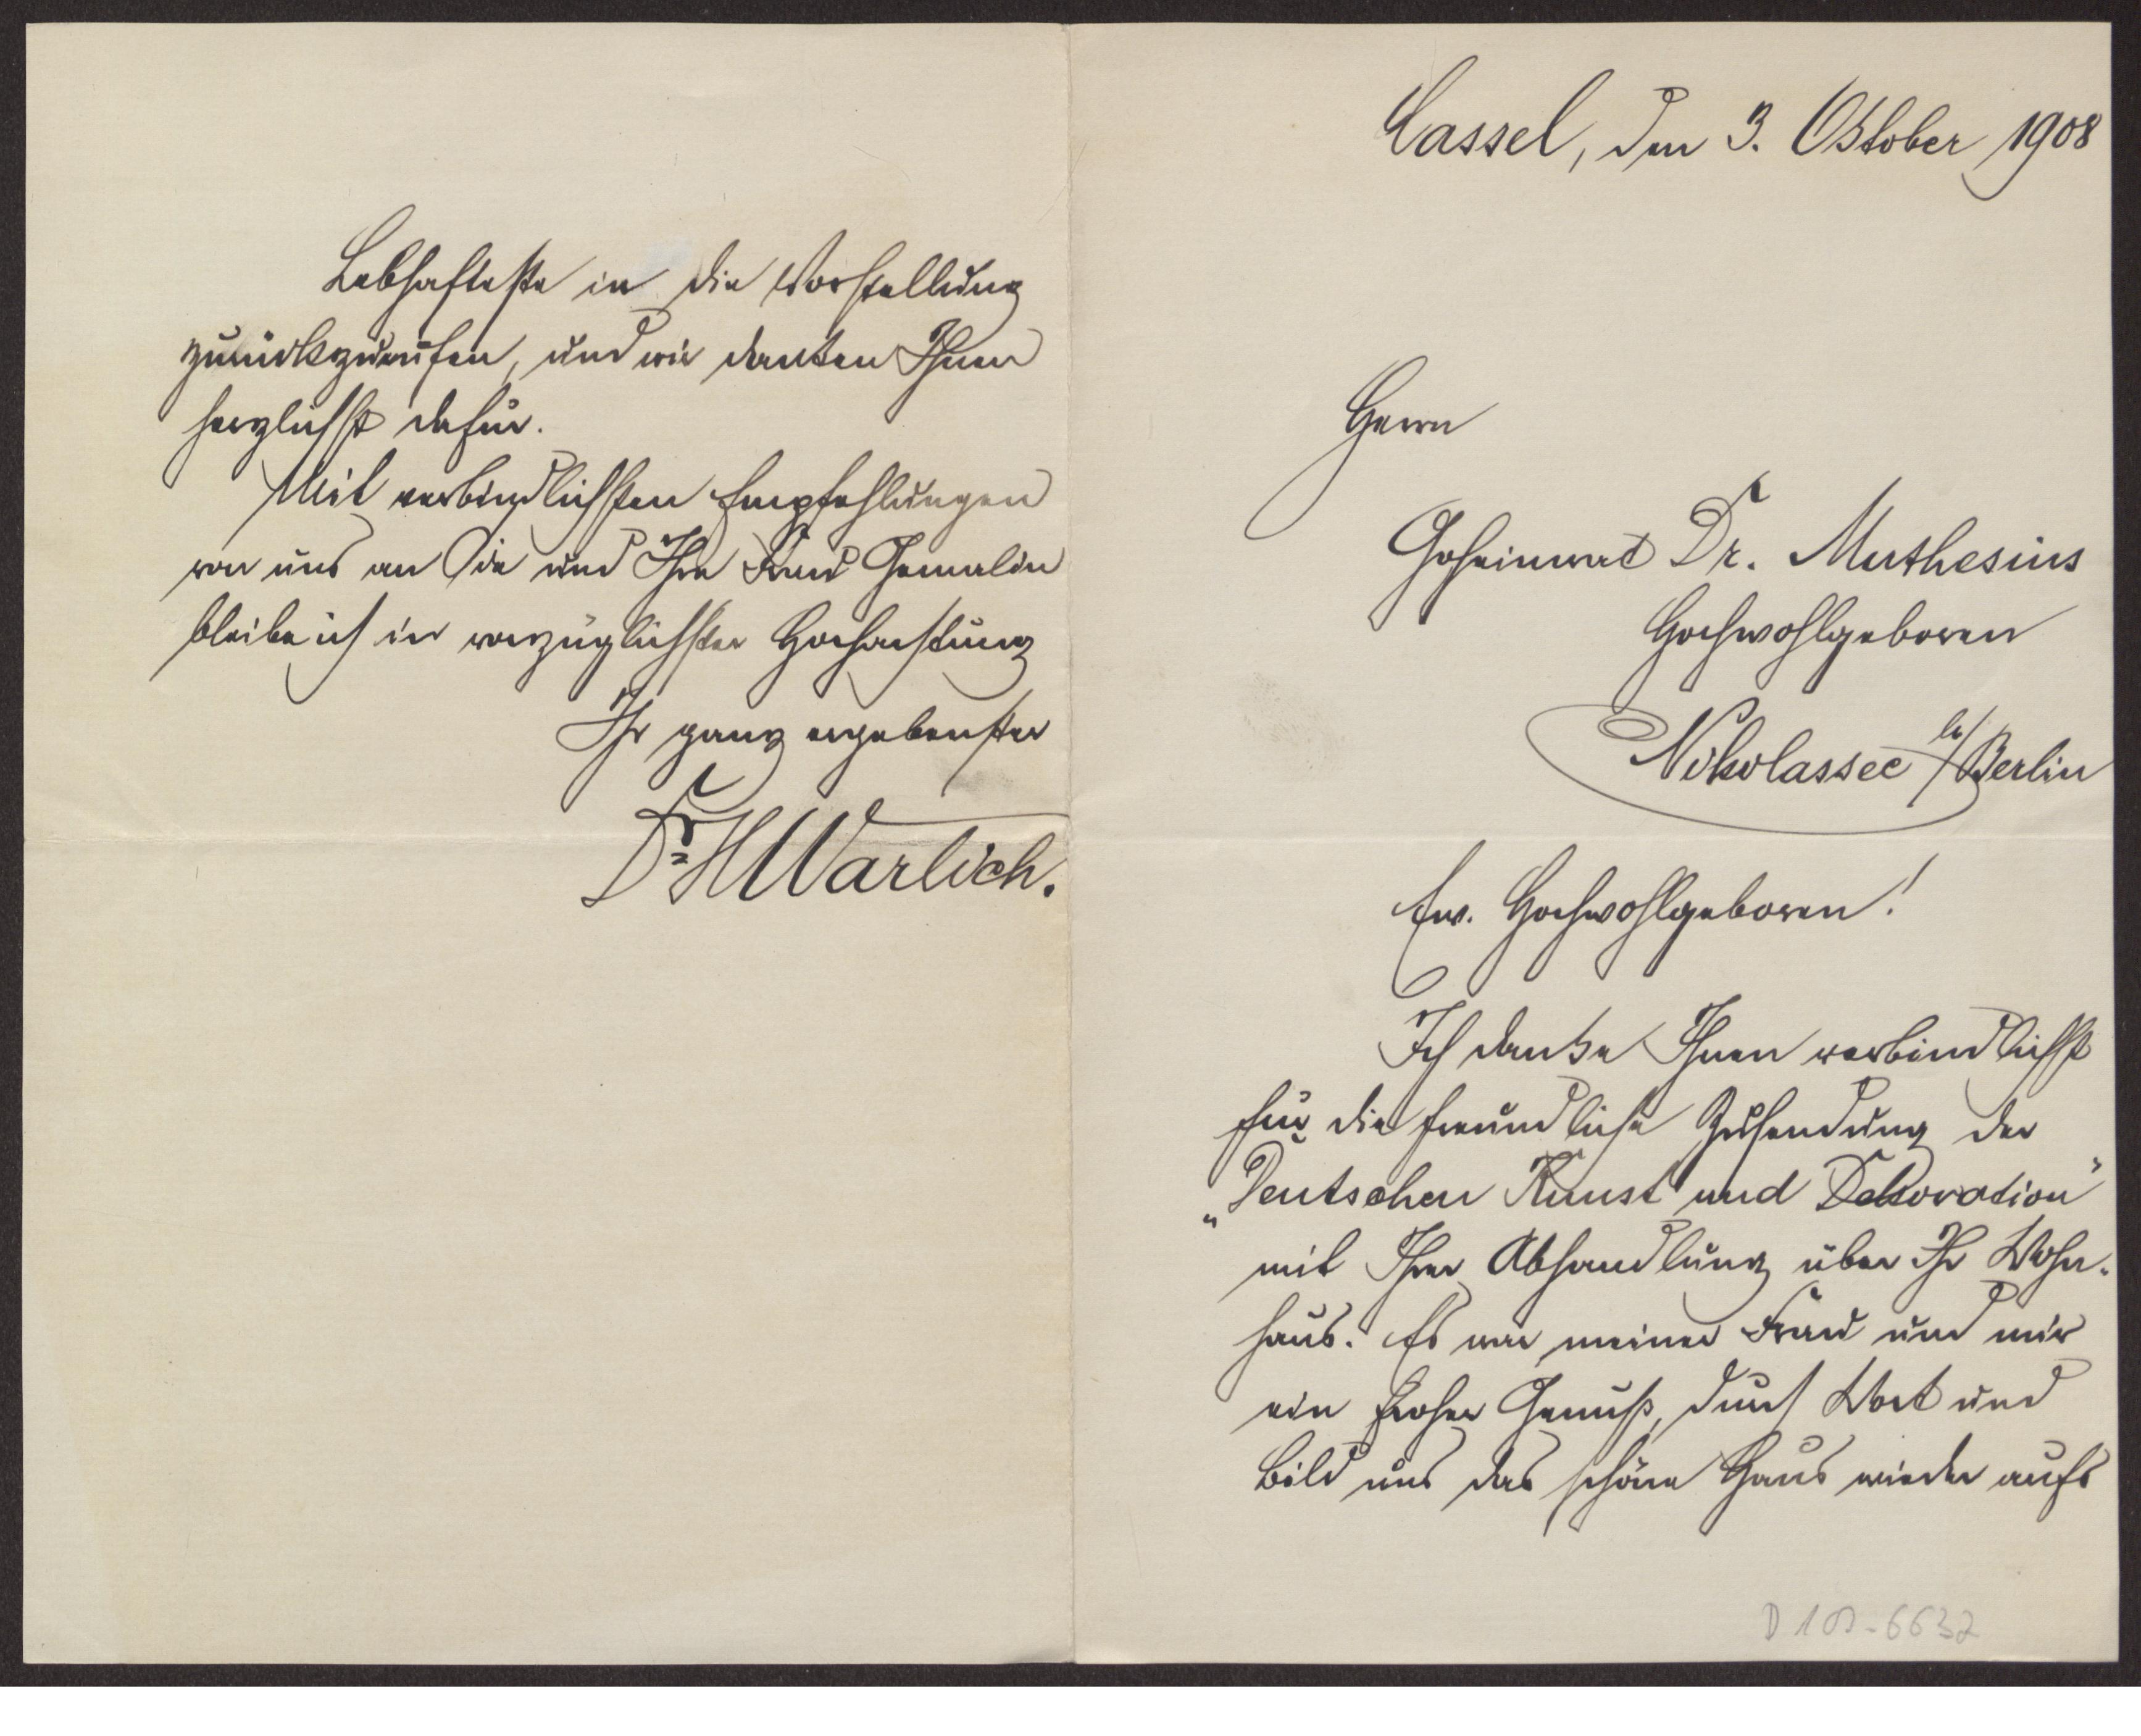 Cassel, den 3. Oktober 1908
Herrn
Geheimrat Dr. Muthesius
Hochwohlgeboren
Nikolassee b/Berlin
Ew. Hochwohlgeboren!
Ich danke Ihnen verbindlichst
für die freundliche Zusendung der
„Deutschen Kunst und Dekoration"
mit Ihrer Abhandlung über Ihr Wohn-
haus. Es war meiner Frau und mir
ein hoher Genuß, durch Wort und
Bild uns das schöne Haus wieder aufs
D 102-6632
Lebhafteste in die Vorstellung
zurückzurufen, und wir danken Ihnen
herzlichst dafür.
Mit verbindlichsten Empfehlungen
von uns an Sie und Ihre Frau Gemalin
bleibe ich in vorzüglichster Hochachtung
Ihr ganz ergebenster
Dr. H Warlich.